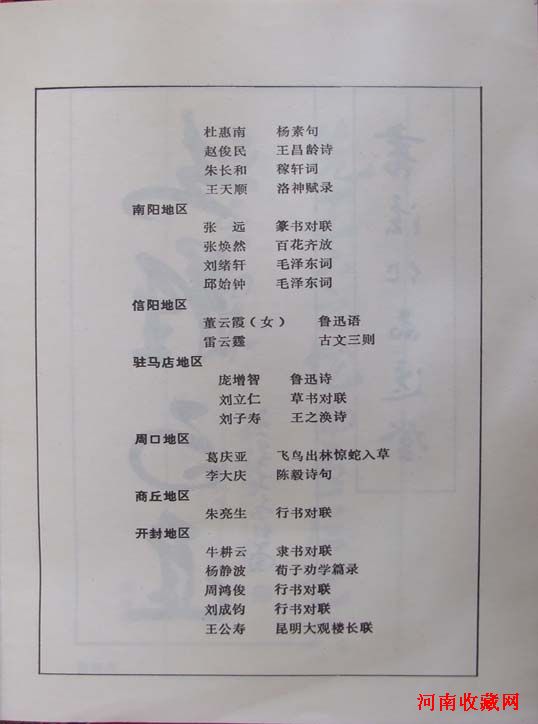 杜惠南 杨素句
赵俊民 王昌龄诗
朱长和 稼轩词
王天顺 洛神赋录
南阳地区
张 远 篆书对联
张焕然 百花齐放
刘绪轩 毛泽东词
邱始钟 毛泽东词
信阳地区
董云霞（女） 鲁迅语
雷云霆 古文三则
驻马店地区
庞增智 鲁迅诗
刘立仁 草书对联
刘子寿 王之涣诗
周口地区
葛庆亚 飞鸟出林惊蛇入草
李大庆 陈毅诗句
商丘地区
朱亮生 行书对联
开封地区
牛耕云 隶书对联
杨静波 荀子劝学篇录
周鸿俊 行书对联
刘成钧 行书对联
王公寿 昆明大观楼长联
河南收藏网